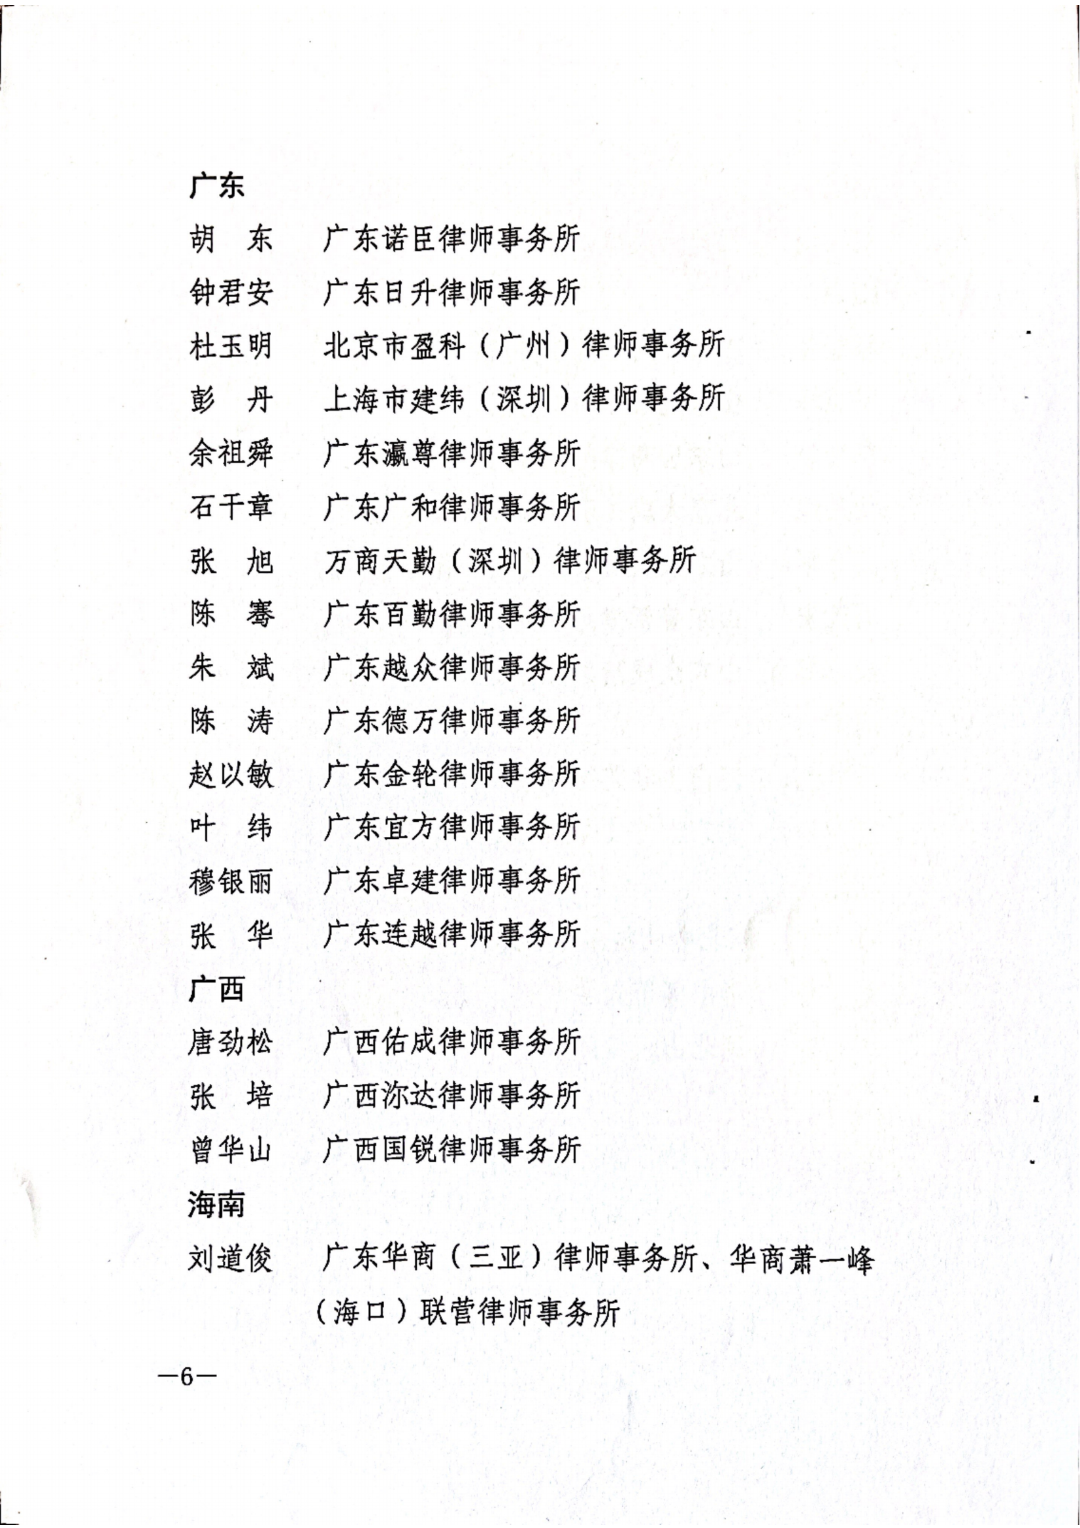 广东
胡　东　广东诺臣律师事务所
钟君安　广东日升律师事务所
杜玉明　北京市盈科（广州）律师事务所
彭　丹　上海市建纬（深圳）律师事务所
余祖舜　广东瀛尊律师事务所
石干章　广东广和律师事务所
张　旭　万商天勤（深圳）律师事务所
陈　骞　广东百勤律师事务所
朱　斌　广东越众律师事务所
陈　涛　广东德万律师事务所
赵以敏　广东金轮律师事务所
叶　纬　广东宜方律师事务所
穆银丽　广东卓建律师事务所
张　华　广东连越律师事务所
广西
唐劲松　广西佑成律师事务所
张　培　广西沵达律师事务所
曾华山　广西国锐律师事务所
海南
刘道俊　广东华商（三亚）律师事务所、华商萧一峰
（海口）联营律师事务所
—6—